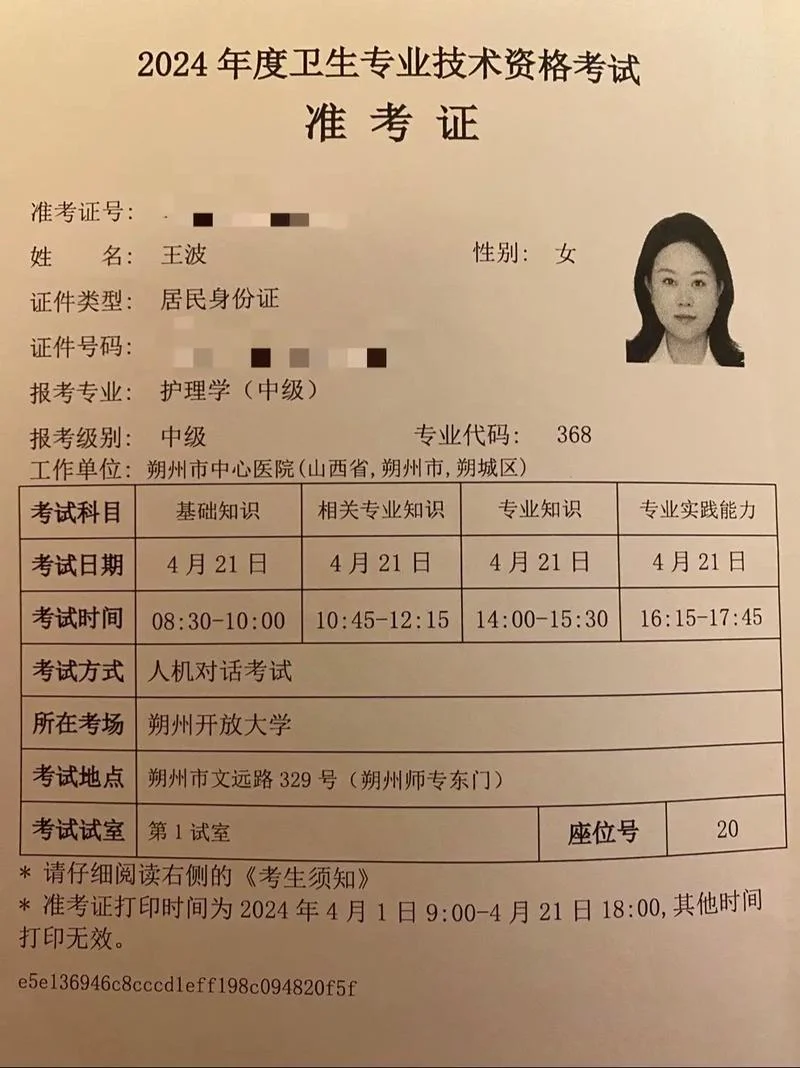 2024 年度卫生专业技术资格考试
准 考 证
准考证号:
姓 名: 王波 性别: 女
证件类型: 居民身份证
证件号码:
报考专业: 护理学（中级）
报考级别: 中级 专业代码: 368
工作单位: 朔州市中心医院(山西省,朔州市,朔城区)
考试科目 基础知识 相关专业知识 专业知识 专业实践能力
考试日期 4 月 21 日 4 月 21 日 4 月 21 日 4 月 21 日
考试时间 08:30-10:00 10:45-12:15 14:00-15:30 16:15-17:45
考试方式 人机对话考试
所在考场 朔州开放大学
考试地点 朔州市文远路 329 号（朔州师专东门）
考试试室 第 1 试室 座位号 20
* 请仔细阅读右侧的《考生须知》
* 准考证打印时间为 2024 年 4 月 1 日 9:00-4 月 21 日 18:00,其他时间
打印无效。
e5e136946c8cccd1eff198c094820f5f